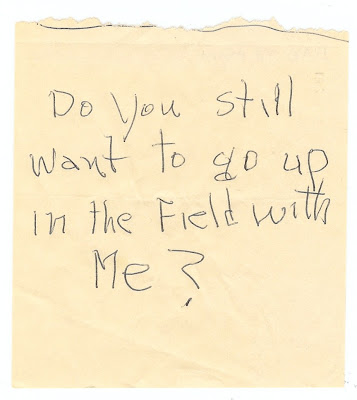 Do you still
want to go up
in the Field with
Me?